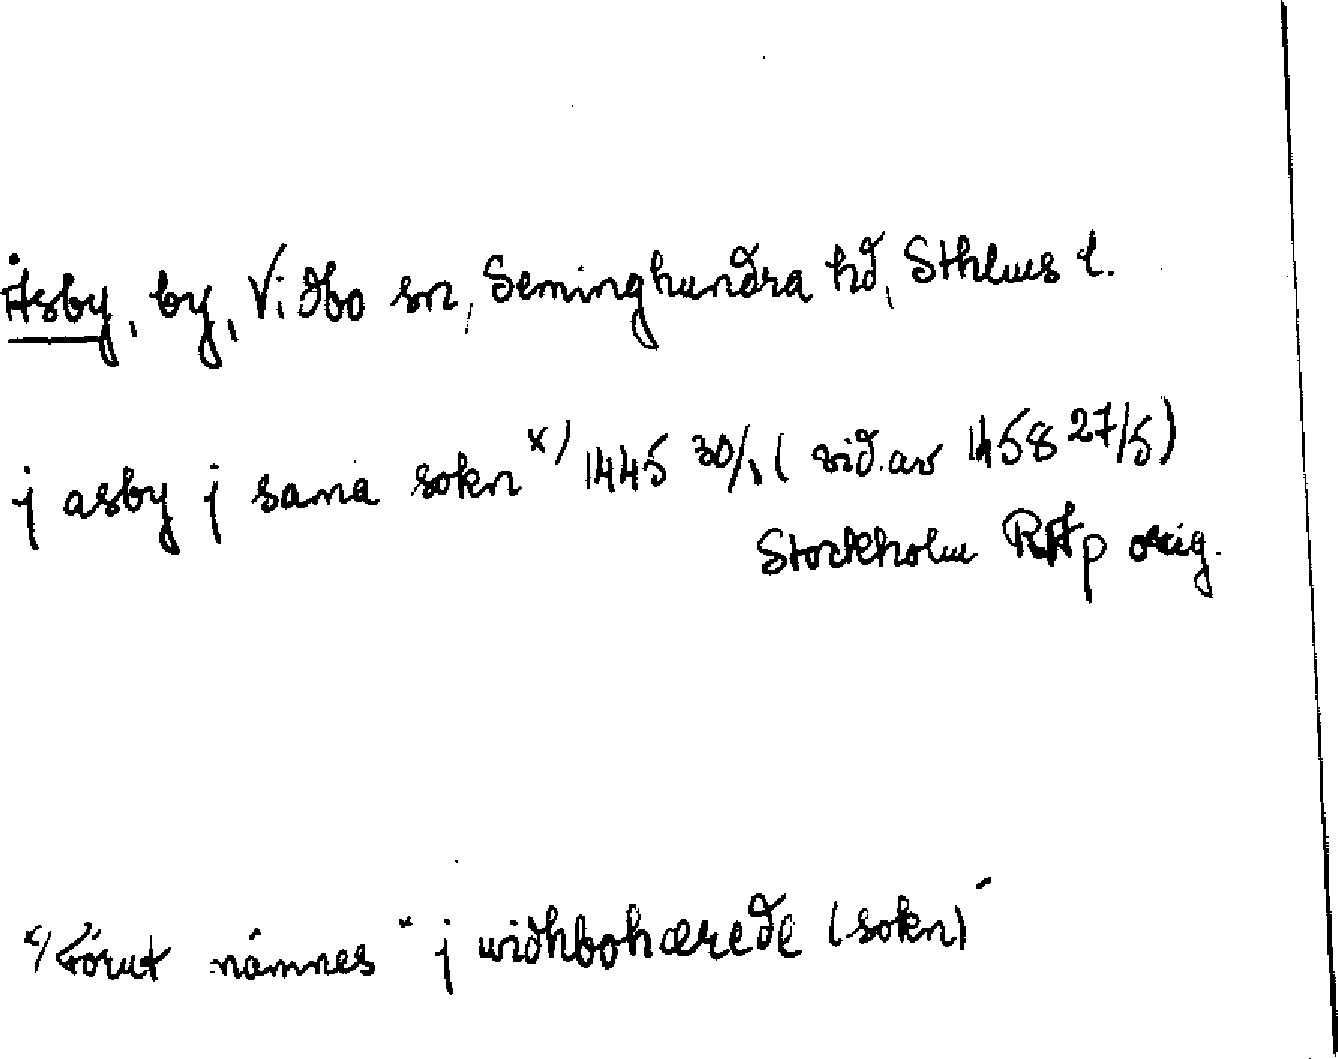 Åsby, by, Vidbo sn, Seminghundra hd, Sthlms l.
j asby j sama sokn x) 1445 30/1 ( vid. av 1458 27/5)
Stockholm RAp orig.
x) Förut nämnes "j widhbohærede (sokn)"